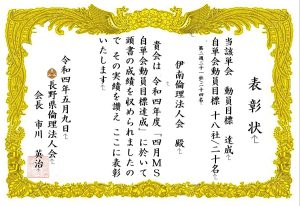 表彰状
当該単会 動員目標 達成
自単会動員目標 十八社/二十名
伊南倫理法人会 殿
貴会は 令和四年度「四月MS
自単会動員目標達成」に於いて
頭書の成績を収められましたの
で その実績を讃え ここに表彰
いたします
令和四年五月九日
長野県倫理法人会
会長 市川 英治